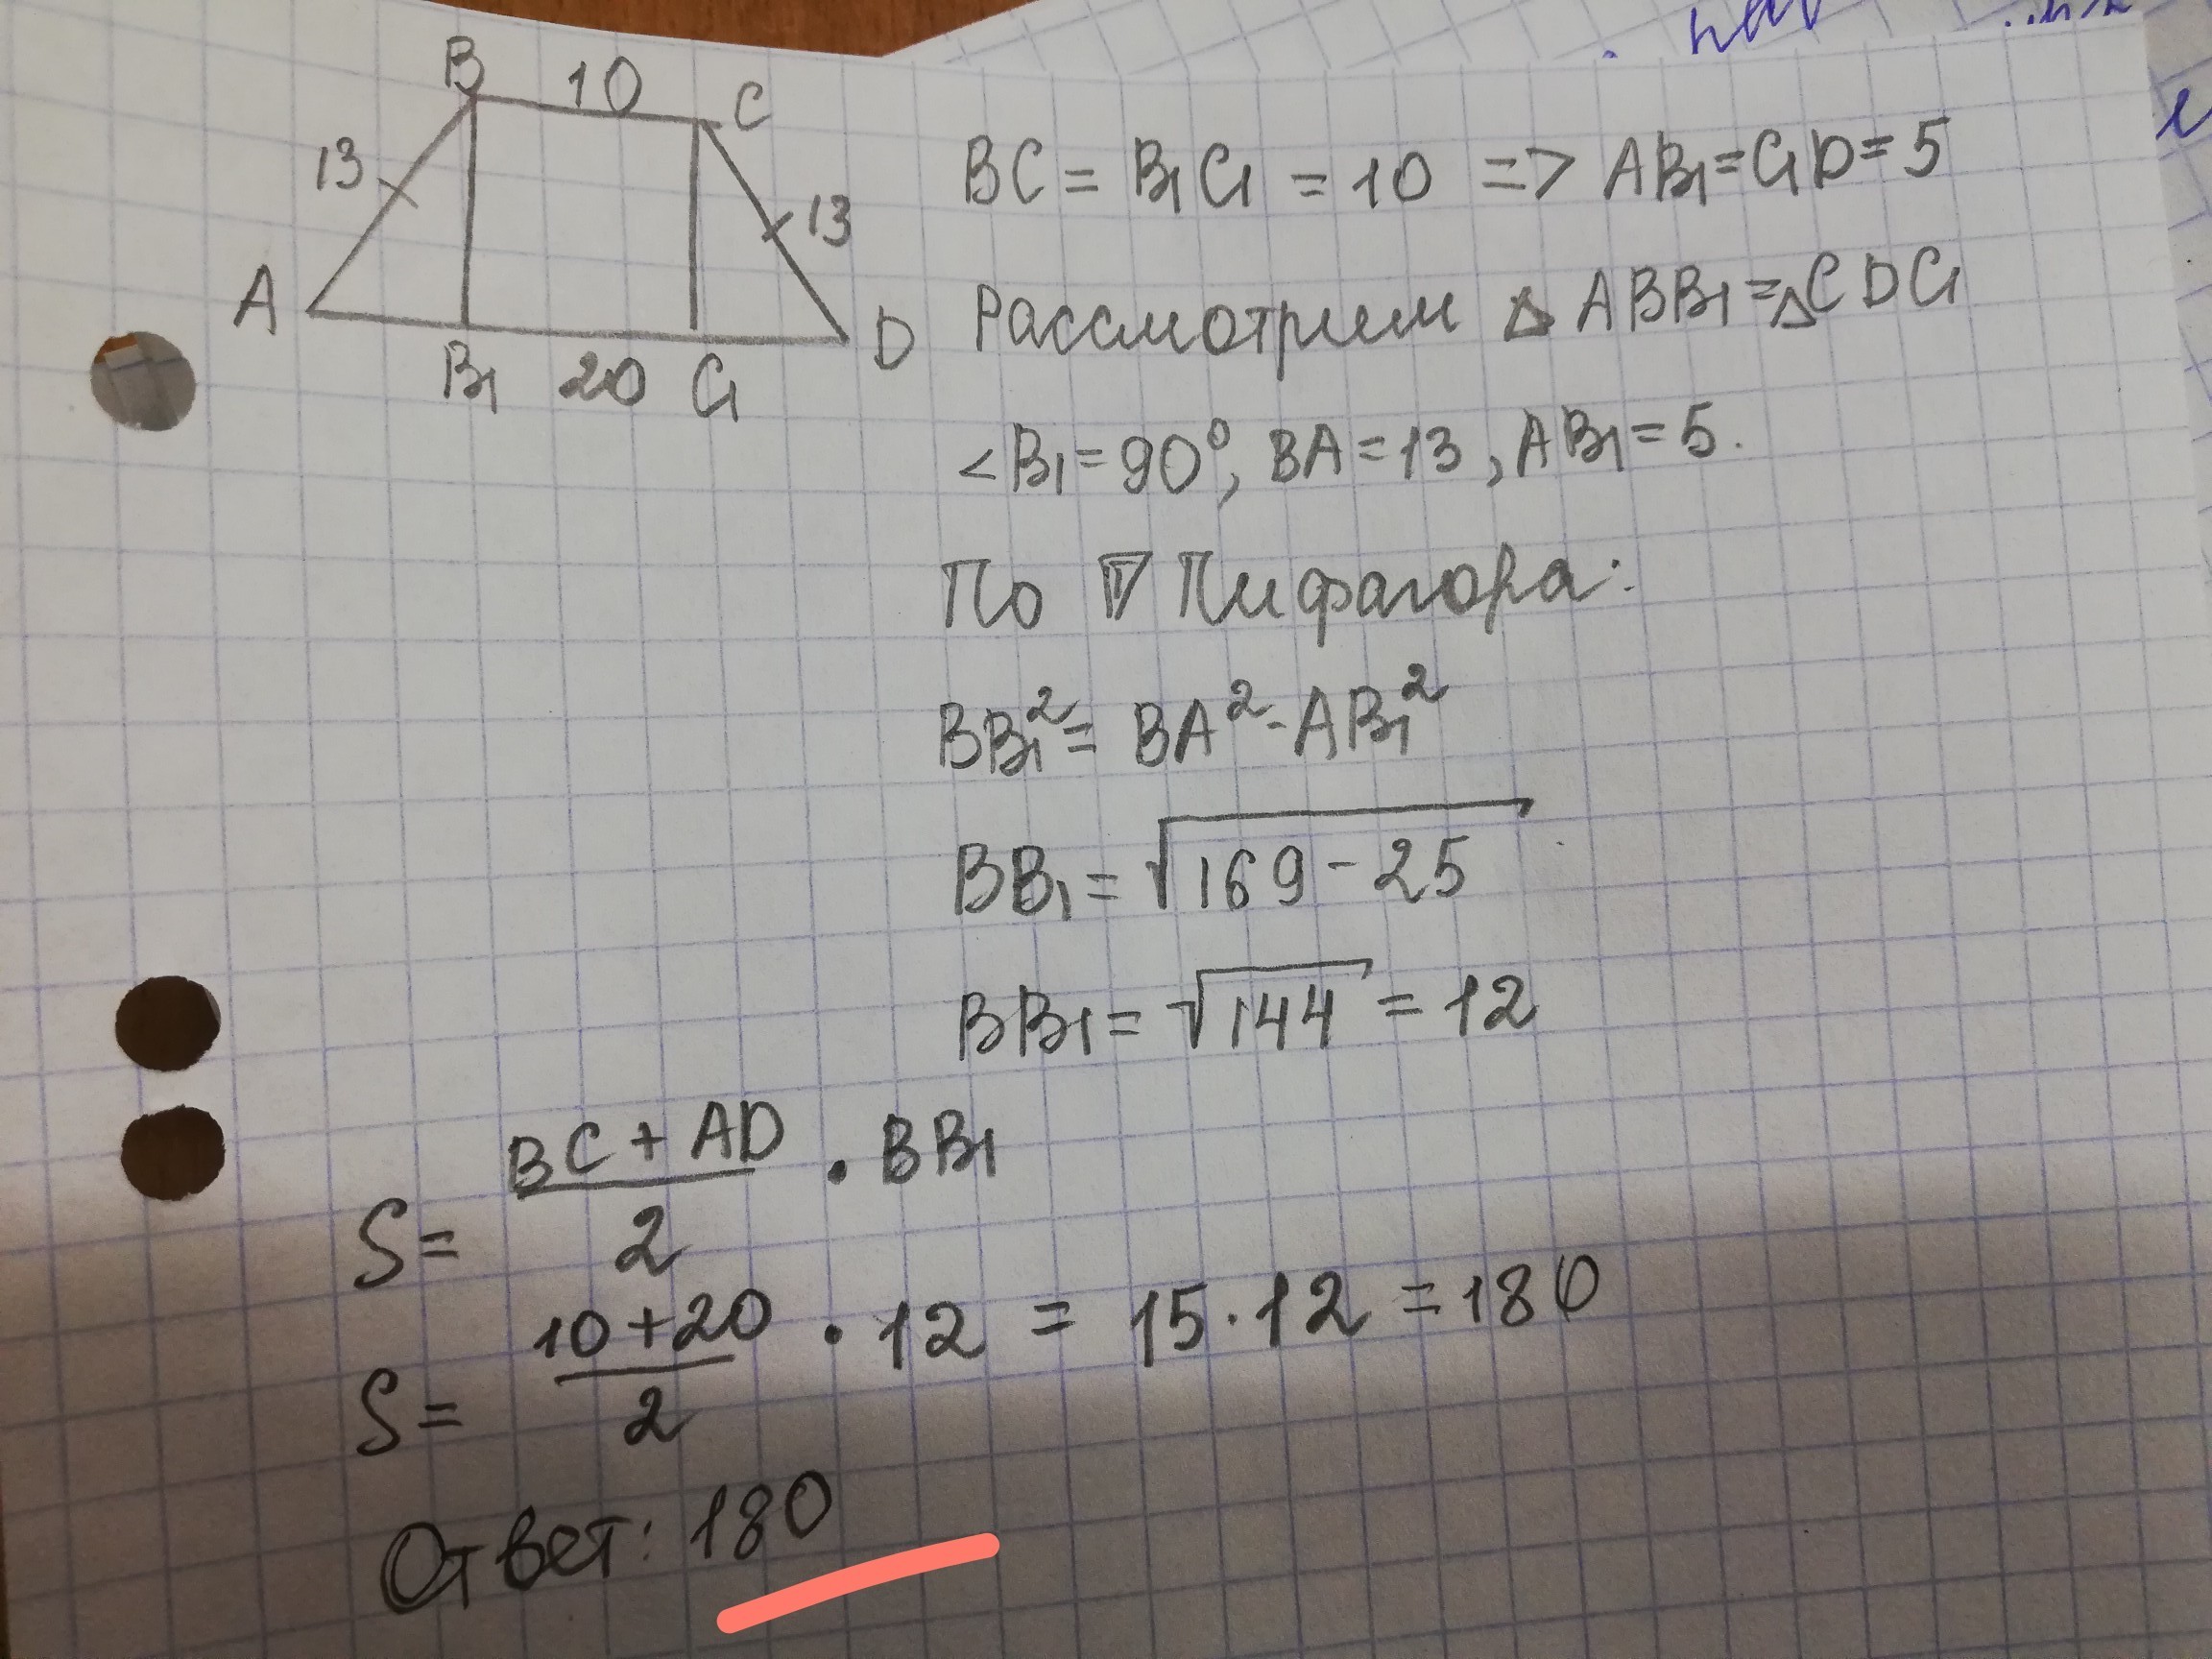 B 10 C
13 13
A D
B₁ 20 C₁
BC = B₁C₁ = 10 => AB₁=C₁D=5
Рассмотрим △ ABB₁=△CDC₁
<B₁=90°, BA=13, AB₁=5.
По Т Пифагора:
BB₁²= BA²-AB₁²
BB₁= √169-25
BB₁= √144 = 12
S= BC+AD/2 · BB₁
S= 10+20/2 · 12 = 15·12 =180
Ответ: 180